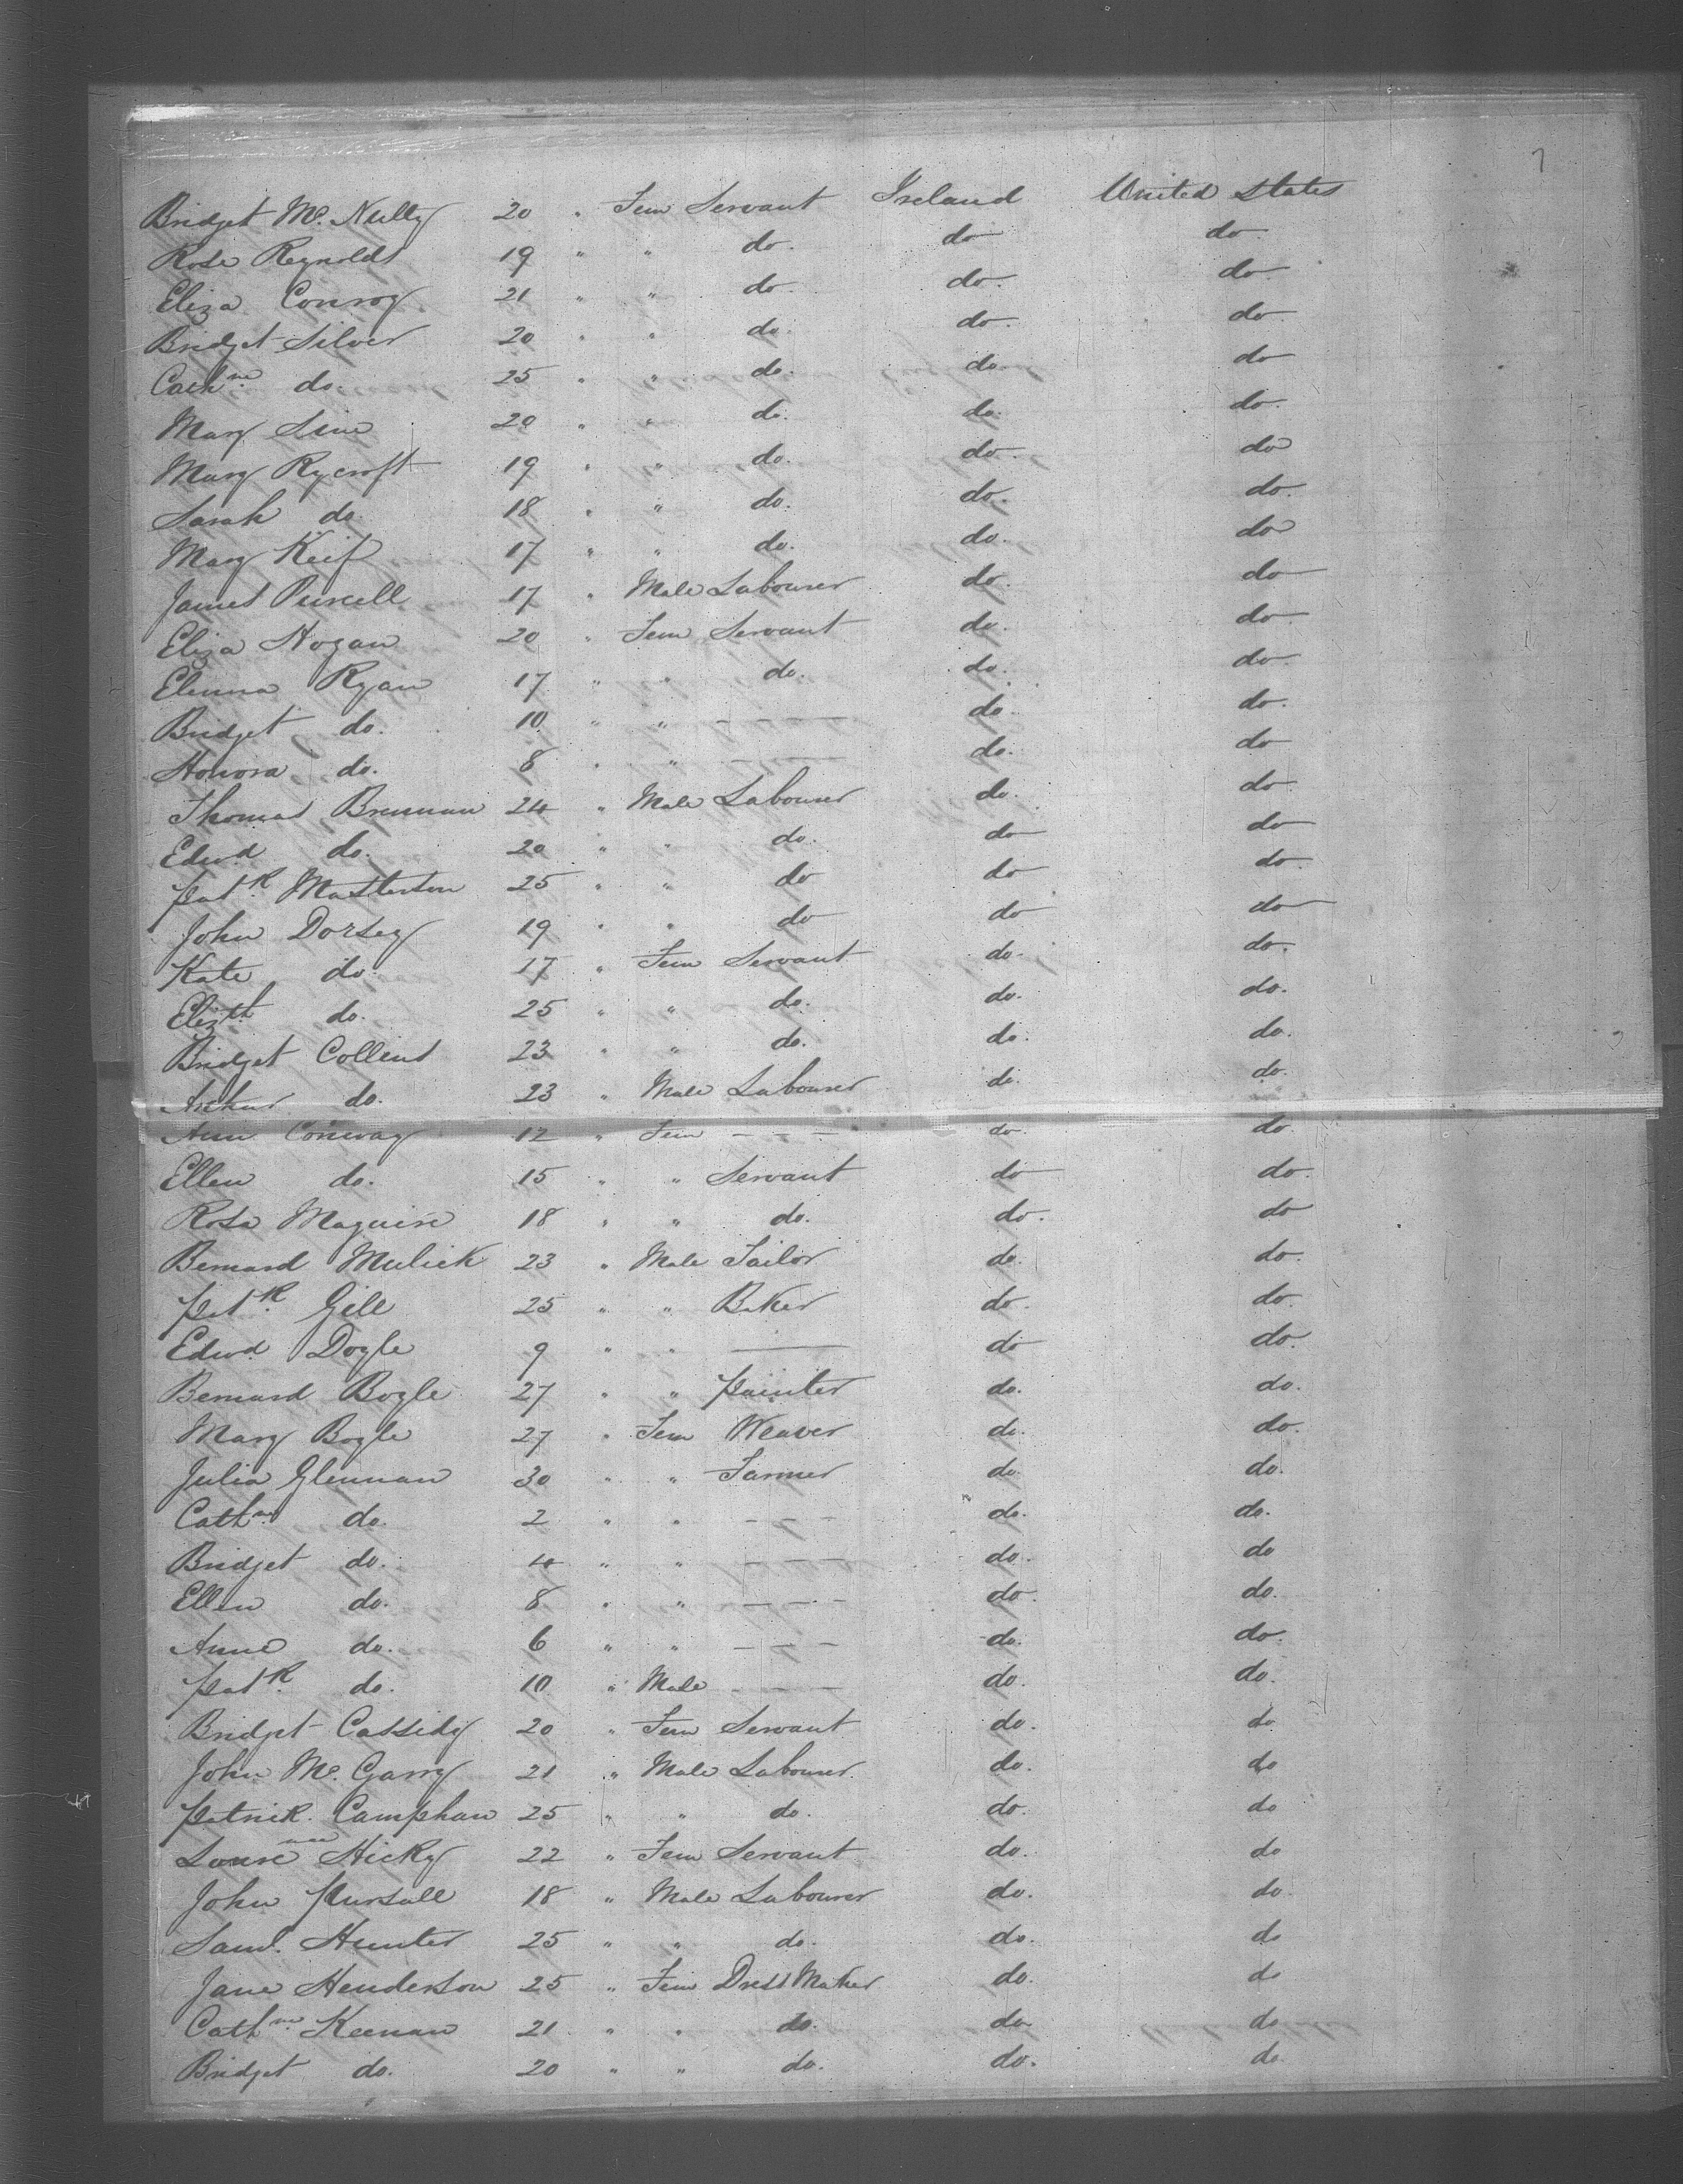 7
Bridget Mc. Nulty 20 " Fem Servant Ireland United States
Rose Reynolds 19 " " do. do do.
Eliza Conroy 21 " " do do. do
Bridget Silver 20 " " do. do. do.
Cathne do. 25 " " do. do. do
Mary 20 " " do. do. do.
Mary Rycroft 19 " " do. do. do
Sarah do. 18 " " do. do. do.
Mary Keif 17 " " do. do. do
James Purcell 17 " Male Labourer do. do
Eliza Hogan 20 " Fem Servant do. do.
Elenna Ryan 17 " " do. do. do.
Bridget do. 10 " " - - - do. do.
Honora do. 8 " " - - - do. do
Thomas Brennan 24 " Male Labourer do. do
Edwd do. 20 " " do. do do
Patk Masterson 25 " " do do do.
John Dorsey 19 " " do do do
Kate do. 17 " Fem Servant do. do.
Elizth do. 25 " " do. do. do.
Bridget Collins 23 " " do. do. do.
Arthur do. 23 " Male Labourer do. do.
Ann Conway 12 " Fem - - - do. do.
Ellen do. 15 " " Servant do do.
Rosa Maguire 18 " " do. do. do
Bernard Mulick 23 " Male Tailor do. do.
Patk Gill 25 " " Baker do. do.
Edwd Doyle 9 " " — do do.
Bernard Bogle 27 " " Painter do. do.
Mary Bogle 27 " Fem Weaver do. do.
Julia Glennan 30 " " Farmer do. do.
Cathne do. 2 " " - - - do. do.
Bridget do. 4 " " - - - do. do
Ellen do. 8 " " - - - do. do.
Anne do. 6 " " - - - do. do.
Patk do. 10 " Male - - - do. do.
Bridget Cassidy 20 " Fem Servant do. do
John Mc. Garry 21 " Male Labourer do. do
Patrick Camphan 25 " " do. do. do
Hicky 22 " Fem Servant do. do
John Pursall 18 " Male Labourer do. do.
Saml. Hunter 25 " " do. do. do
Jane Henderson 25 " Fem Dress Maker do. do
Cathne Keenan 21 " " do. do. do
Bridget do. 20 " " do. do. do.